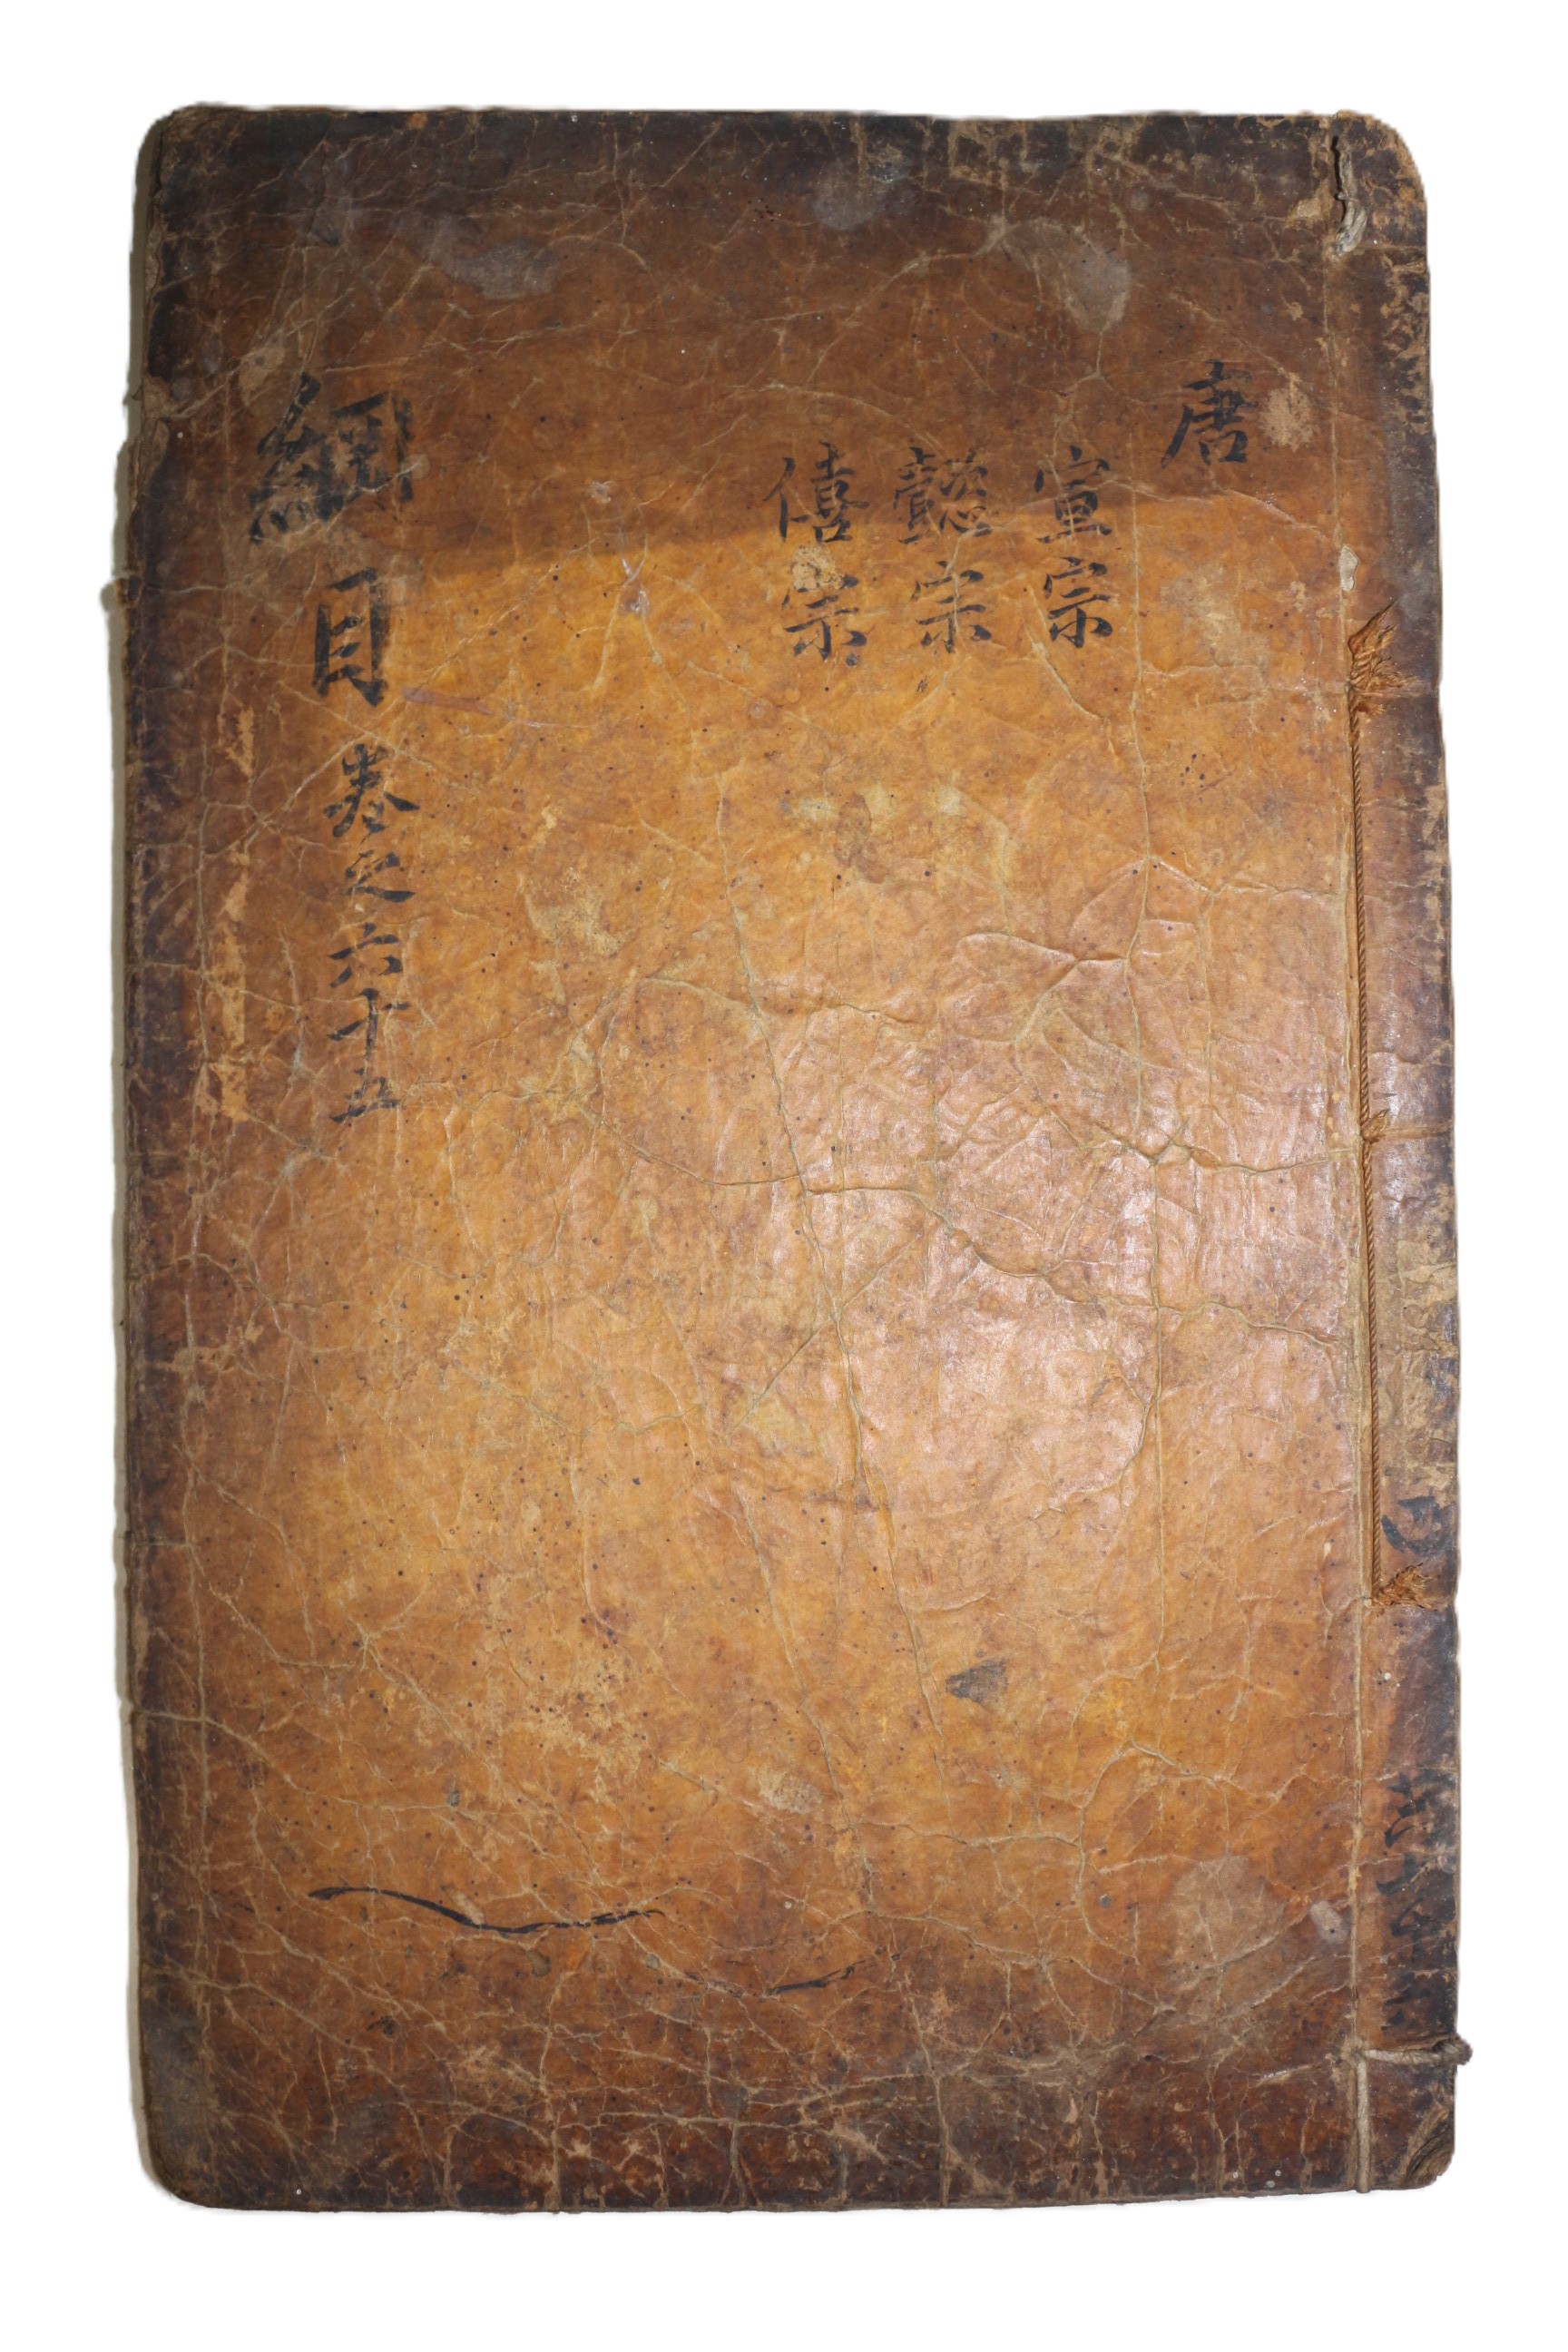 唐
宣宗
懿宗
僖宗
綱目 卷之六十五